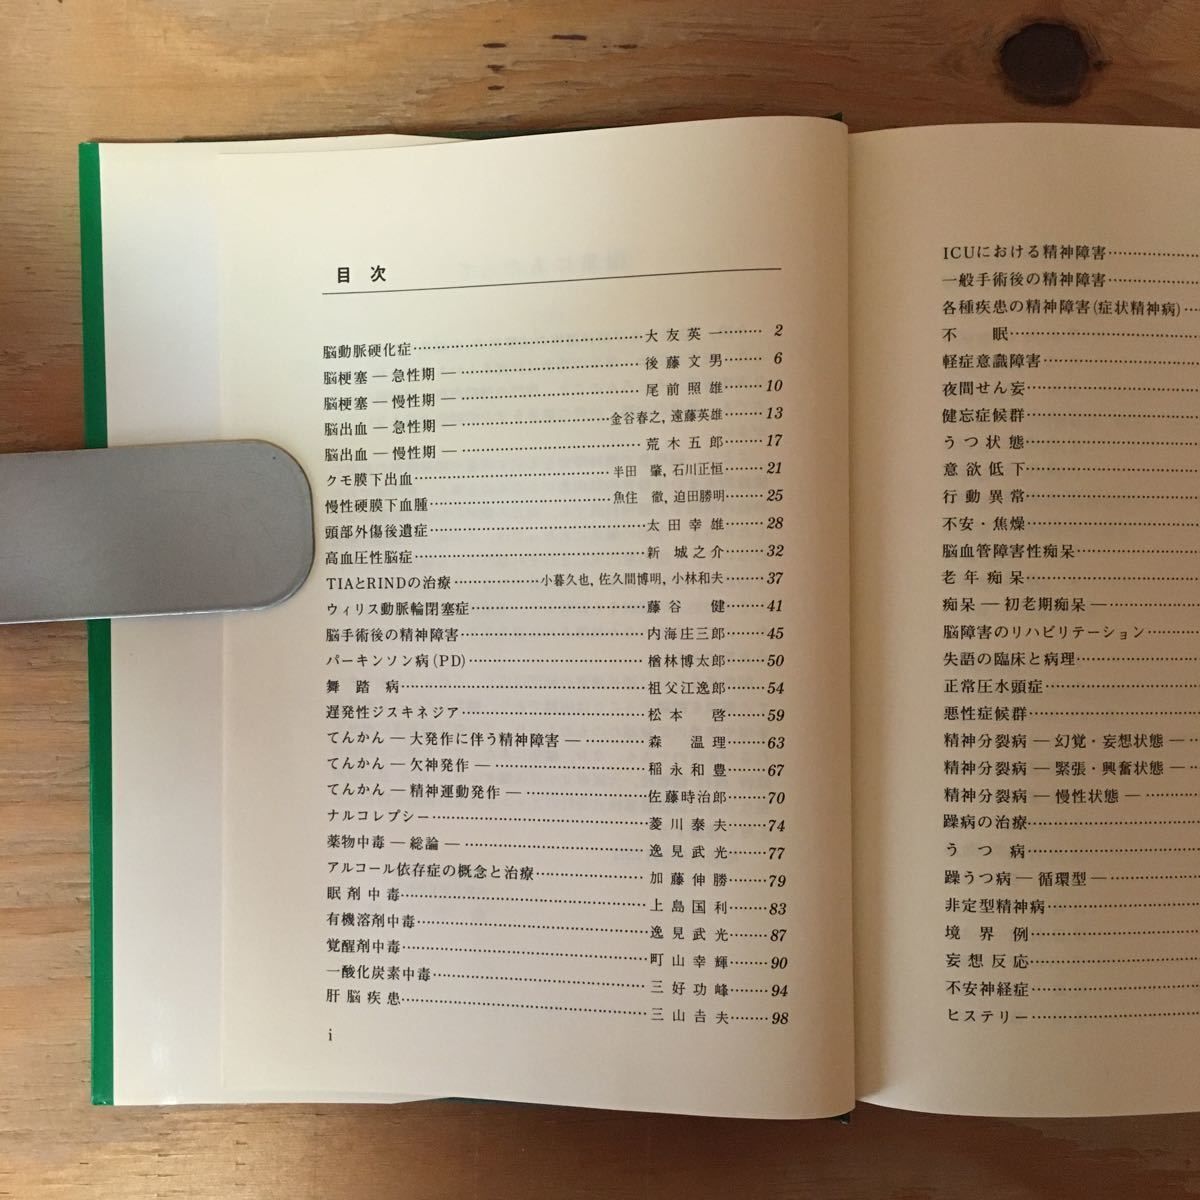 目次
脳動脈硬化症……大友英一……2
脳梗塞―急性期―……後藤文男……6
脳梗塞―慢性期―……尾前照雄……10
脳出血―急性期―……金谷春之, 遠藤英雄……13
脳出血―慢性期―……荒木五郎……17
クモ膜下出血……半田 肇, 石川正恒……21
慢性硬膜下血腫……魚住 徹, 迫田勝明……25
頭部外傷後遺症……太田幸雄……28
高血圧性脳症……新城之介……32
TIAとRINDの治療……小暮久也, 佐久間博明, 小林和夫……37
ウィリス動脈輪閉塞症……藤谷 健……41
脳手術後の精神障害……内海庄三郎……45
パーキンソン病(PD)……楢林博太郎……50
舞踏病……祖父江逸郎……54
遅発性ジスキネジア……松本 啓……59
てんかん―大発作に伴う精神障害―……森 温理……63
てんかん―欠神発作―……稲永和豊……67
てんかん―精神運動発作―……佐藤時治郎……70
ナルコレプシー……菱川泰夫……74
薬物中毒―総論―……逸見武光……77
アルコール依存症の概念と治療……加藤伸勝……79
眠剤中毒……上島国利……83
有機溶剤中毒……逸見武光……87
覚醒剤中毒……町山幸輝……90
一酸化炭素中毒……三好功峰……94
肝脳疾患……三山吉夫……98
i
ICUにおける精神障害……
一般手術後の精神障害……
各種疾患の精神障害(症状精神病)……
不眠……
軽症意識障害……
夜間せん妄……
健忘症候群……
うつ状態……
意欲低下……
行動異常……
不安・焦燥……
脳血管障害性痴呆……
老年痴呆……
痴呆―初老期痴呆―……
脳障害のリハビリテーション……
失語の臨床と病理……
正常圧水頭症……
悪性症候群……
精神分裂病―幻覚・妄想状態―……
精神分裂病―緊張・興奮状態―……
精神分裂病―慢性状態―……
躁病の治療……
うつ病……
躁うつ病―循環型―……
非定型精神病……
境界例……
妄想反応……
不安神経症……
ヒステリー……